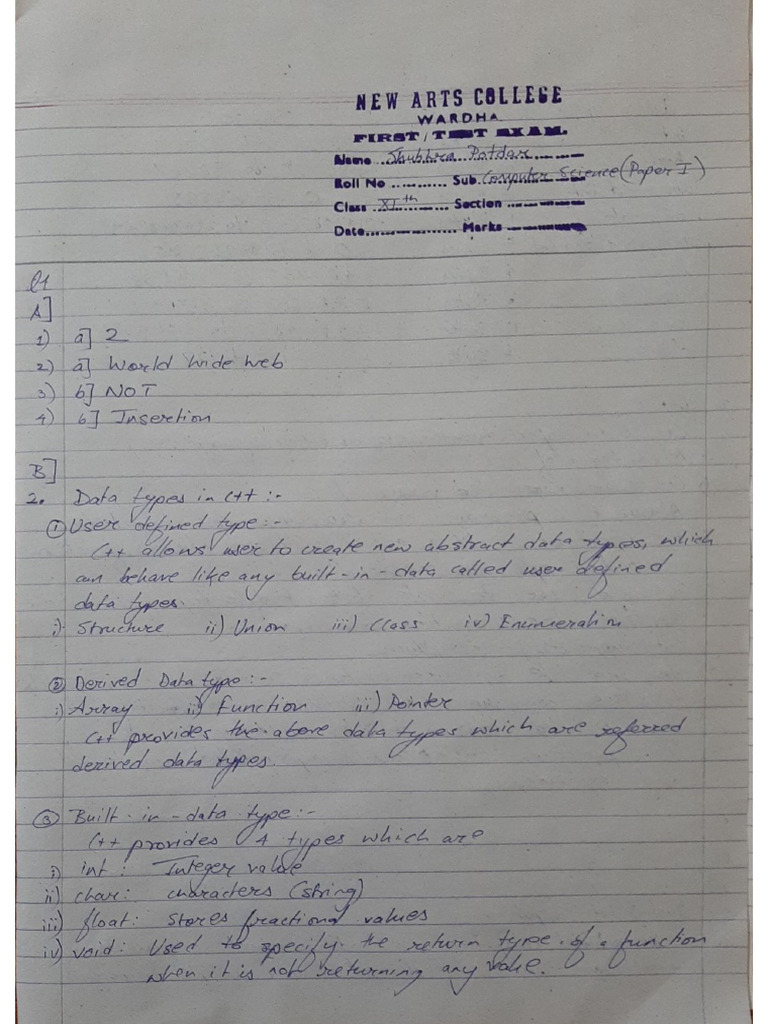 NEW ARTS COLLEGE
WARDHA
FIRST / TEST EXAM.
Name Shubhra Potdar
Roll No ........... Sub. Computer Science (Paper I)
Class XIth Section
Date Marks
Q1
A]
1) a] 2
2) a] World Wide Web
3) b] NOT
4) b] Insertion
B]
2. Data types in C++ :-
① User defined type:-
C++ allows user to create new abstract data types, which
can behave like any built-in-data called user defined
data types.
i) Structure ii) Union iii) Class iv) Enumeration
② Derived Data type :-
i) Array ii) Function iii) Pointer
C++ provides the above data types which are referred
derived data types.
③ Built-in-data type:-
C++ provides 4 types which are
i) int : Integer value
ii) char: characters (string)
iii) float: stores fractional values
iv) void: Used to specify the return type of a function
when it is not returning any value.